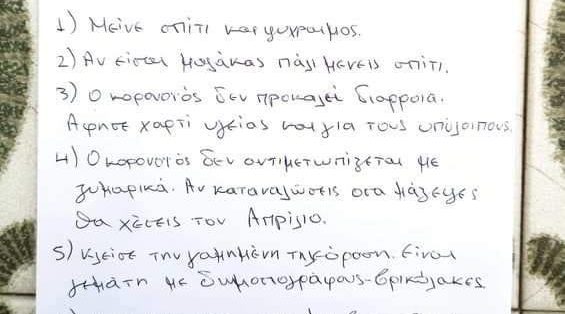 1) Μείνε σπίτι και ψύχραιμος.
2) Αν είσαι μαλάκας πάλι μένεις σπίτι.
3) Ο κορονοϊός δεν προκαλεί διάρροια.
Άφησε χαρτί υγείας και για τους υπόλοιπους.
4) Ο κορονοϊός δεν αντιμετωπίζεται με
ζυμαρικά. Αν καταναλώσεις όσα μάζεψες
θα χέσεις τον Απρίλιο.
5) Κλείσε την γαμημένη τηλεόραση. Είναι
γεμάτη με δημοσιογράφους-βρικόλακες